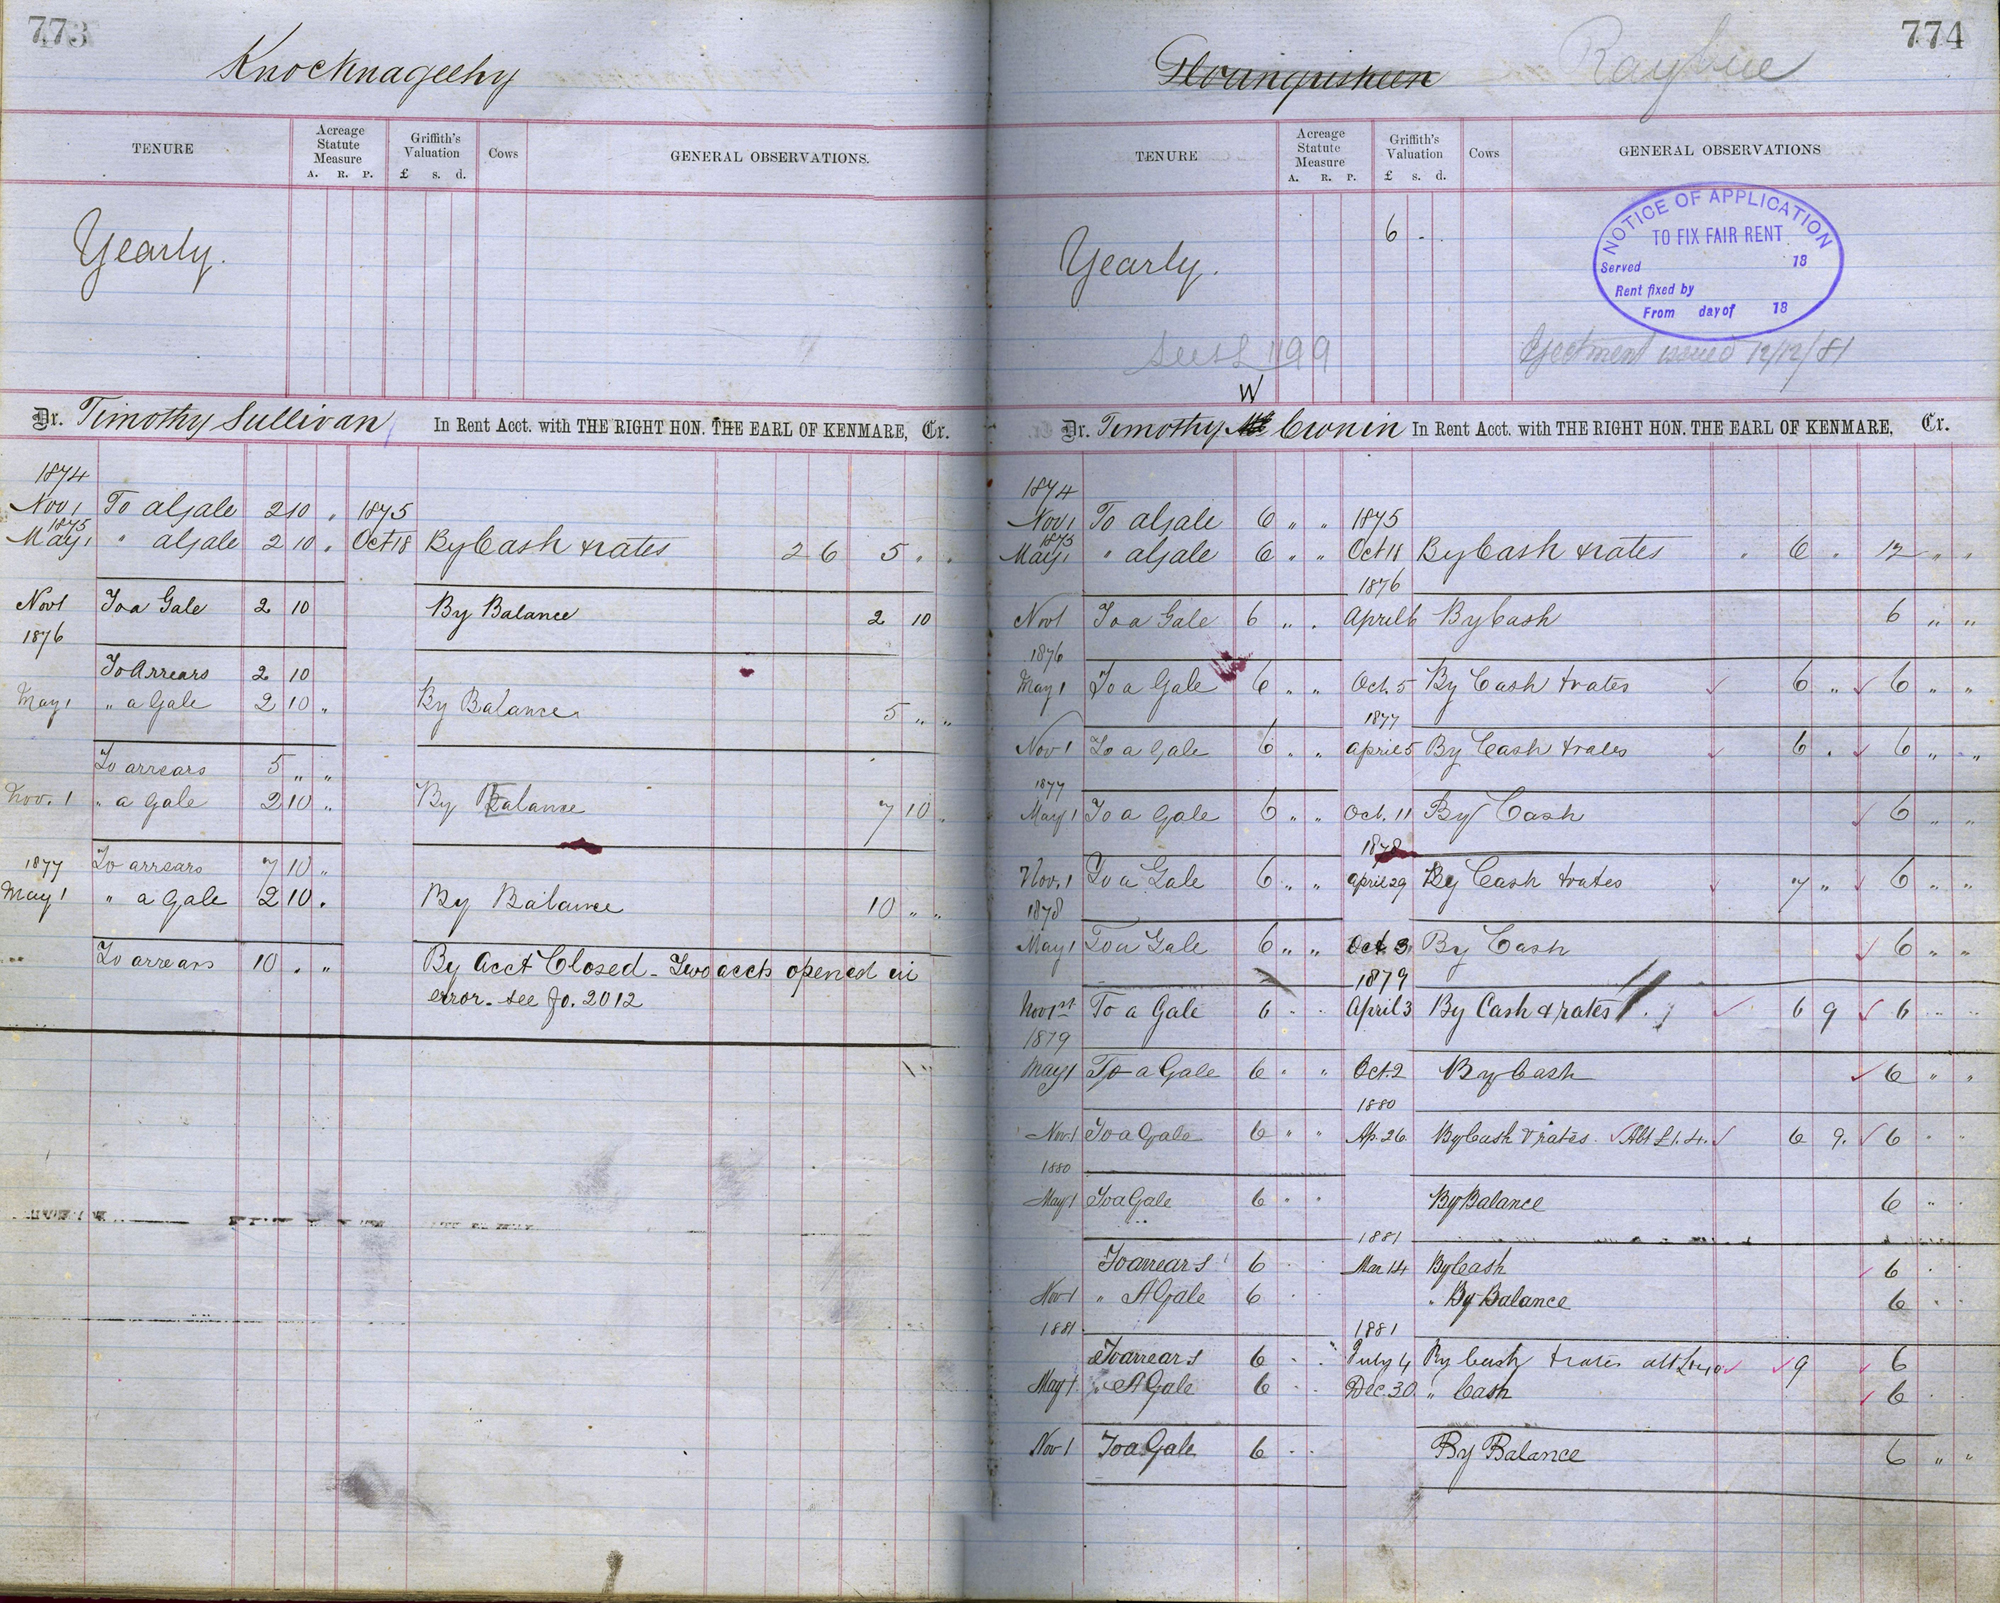 773
Knocknageehy
TENURE
Acreage Statute Measure
A. R. P.
Griffith's Valuation
£ s. d.
Cows
GENERAL OBSERVATIONS.
Yearly.
Dr. Timothy Sullivan In Rent Acct. with THE RIGHT HON. THE EARL OF KENMARE, Cr.
1874
Nov 1 To a Gale 2 10 „ 1875
1875
May 1 " a Gale 2 10 „ Oct 18 By Cash & rates 2 6 5 „ „
Nov 1 To a Gale 2 10 By Balance 2 10
1876
To Arrears 2 10
May 1 " a Gale 2 10 „ By Balance 5 „ „
To arrears 5 „ „
Nov. 1 " a gale 2 10 „ By Balance 7 10 „
1877 To arrears 7 10 „
May 1 " a gale 2 10 „ By Balance 10 „ „
To arrears 10 . „ By Acct Closed - Two accts opened in
error - see fo. 2012
774
Raybue
TENURE
Acreage Statute Measure
A. R. P.
Griffith's Valuation
£ s. d.
Cows
GENERAL OBSERVATIONS
Yearly.
6 - .
NOTICE OF APPLICATION
TO FIX FAIR RENT
Served 18
Rent fixed by
From day of 18
1199
Ejectment issued 12/12/81
W
Dr. Timothy Cronin In Rent Acct. with THE RIGHT HON. THE EARL OF KENMARE, Cr.
1874
Nov 1 To a Gale 6 „ „ 1875
1875
May 1 " a Gale 6 „ „ Oct 18 By Cash & rates " 6 „ 12 „ „
1876
Nov 1 To a Gale 6 „ . April 6 By Cash 6 „ „
1876
May 1 To a Gale 6 „ „ Oct. 5 By Cash & rates 6 „ 6 „ „
1877
Nov 1 To a Gale 6 „ „ April 5 By Cash & rates 6 . 6 „ „
1877
May 1 To a Gale 6 „ „ Oct. 11 By Cash 6 „ „
1878
Nov. 1 To a Gale 6 „ „ April 29 By Cash & rates 7 „ 6 „ „
1878
May 1 To a Gale 6 „ „ Oct 3 By Cash 6 „ „
1879
Nov 1st To a Gale 6 . . April 3 By Cash & rates 6 9 6 „ „
1879
May 1 To a Gale 6 „ „ Oct. 2 By Cash 6 „ „
1880
Nov. 1 To a Gale 6 „ „ Ap. 26 By Cash & rates Abt £1.4. 6 9. 6 „ „
1880
May 1 To a Gale 6 „ „ By Balance 6 „ .
1881
To arrears 6 . . Mar 14 By Cash 6 .
Nov 1 " A Gale 6 . . " By Balance 6 . .
1881 1881
To arrears 6 . . July 4 By Cash & rates 9 6
May 1 " A Gale 6 . . Dec. 30 " Cash 6 . .
Nov 1 To a Gale 6 . . By Balance 6 „ „